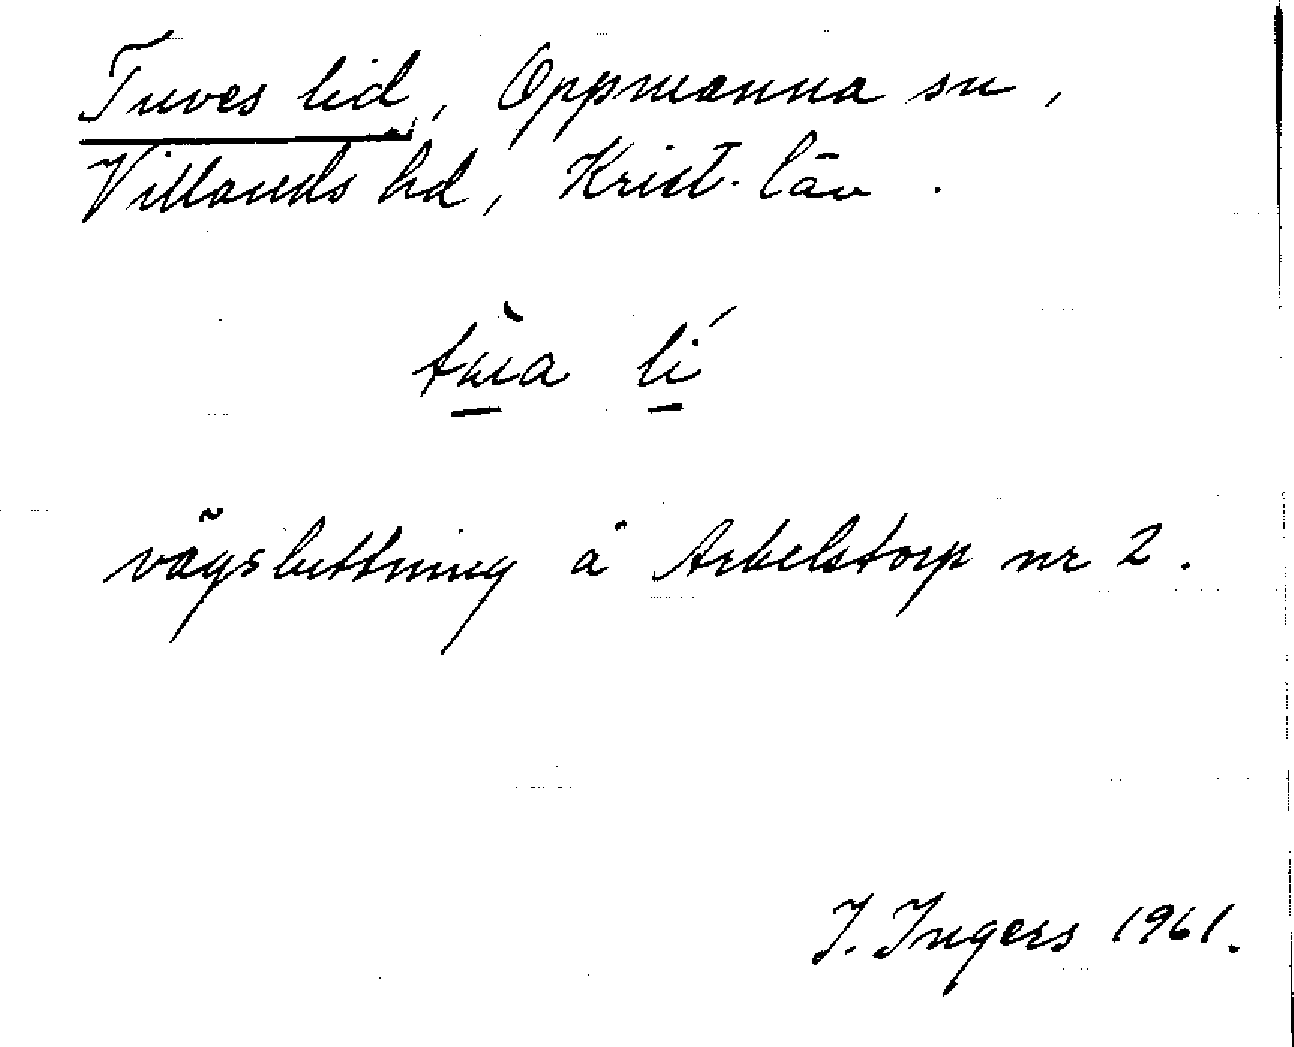 Tuves lid, Oppmanna sn,
Villands hd, Krist. län.
tùa lí
vägsluttning å Arkelstorp nr 2.
I. Ingers 1961.